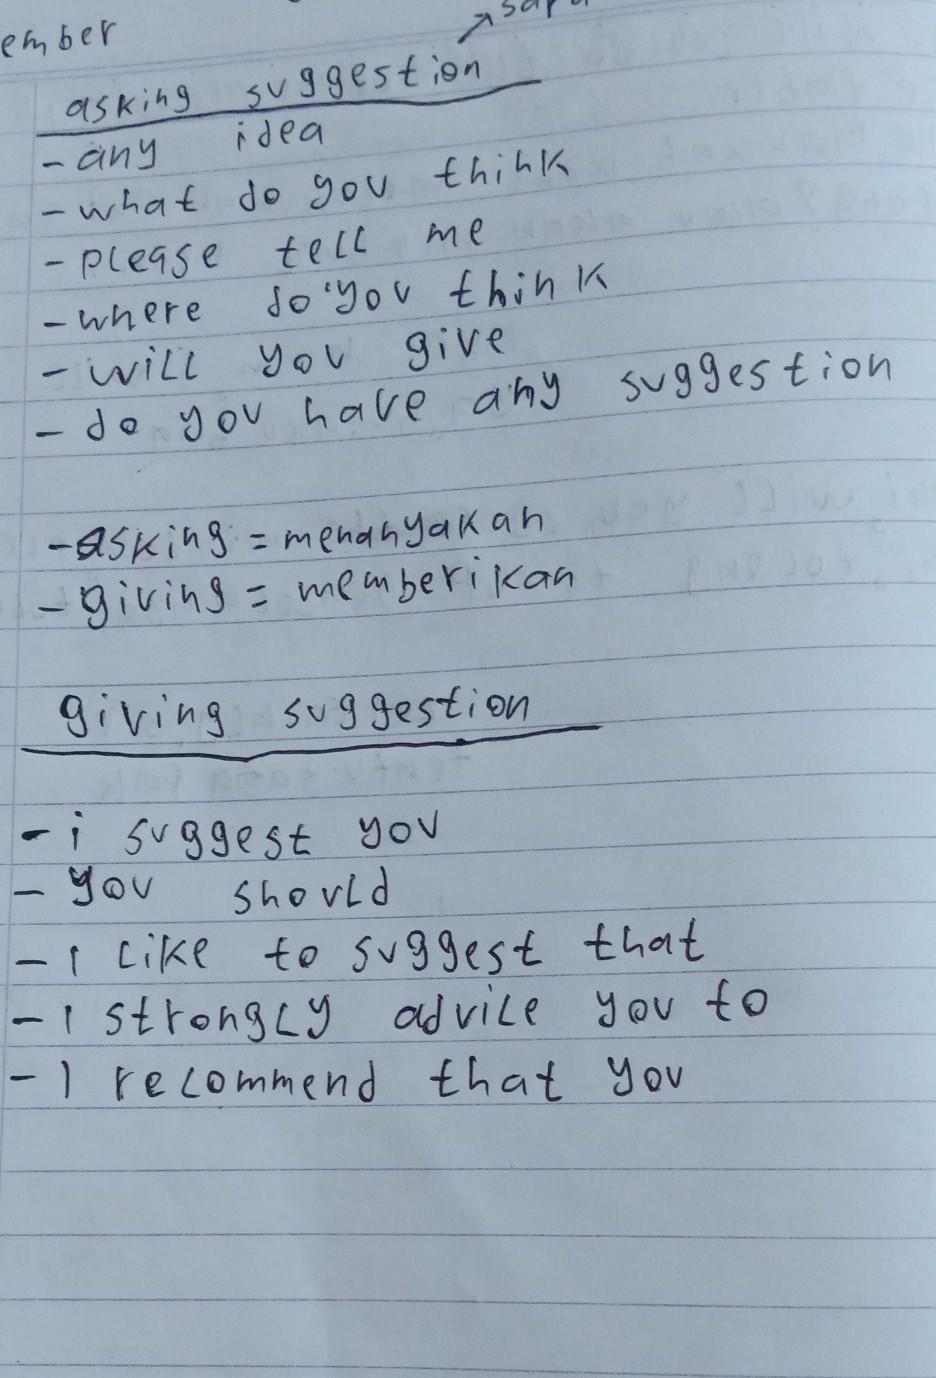 ember
asking suggestion
- any idea
- what do you think
- please tell me
- where do you think
- will you give
- do you have any suggestion
- asking = menanyakan
- giving = memberikan
giving suggestion
- i suggest you
- you should
- I like to suggest that
- I strongly advice you to
- I recommend that you